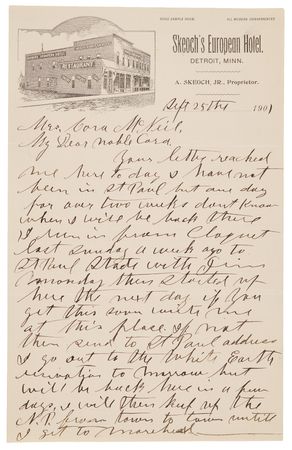 GOOD SAMPLE ROOM.
ALL MODERN CONVENIENCES
Skeoch's European Hotel.
DETROIT, MINN.
A. SKEOCH, JR., Proprietor.
RESTAURANT
Sept 25th 1901
Mrs. Cora McNeil,
My Dear noble Cora
Your letter reached
me here to day I have not
been in St Paul but one day
for over two weeks dont know
when I will be back there
I run in from Cloquet
last Sunday a week ago to
St Paul Staid with Jim
monday then started up
here the next day if you
get this soon write me
at this place If not
then send to St Paul address
I go out to the White Earth
reservation to morrow but
will be back here in a few
days, I will then keep up the
N.P. from town to town until
I get to moorhead